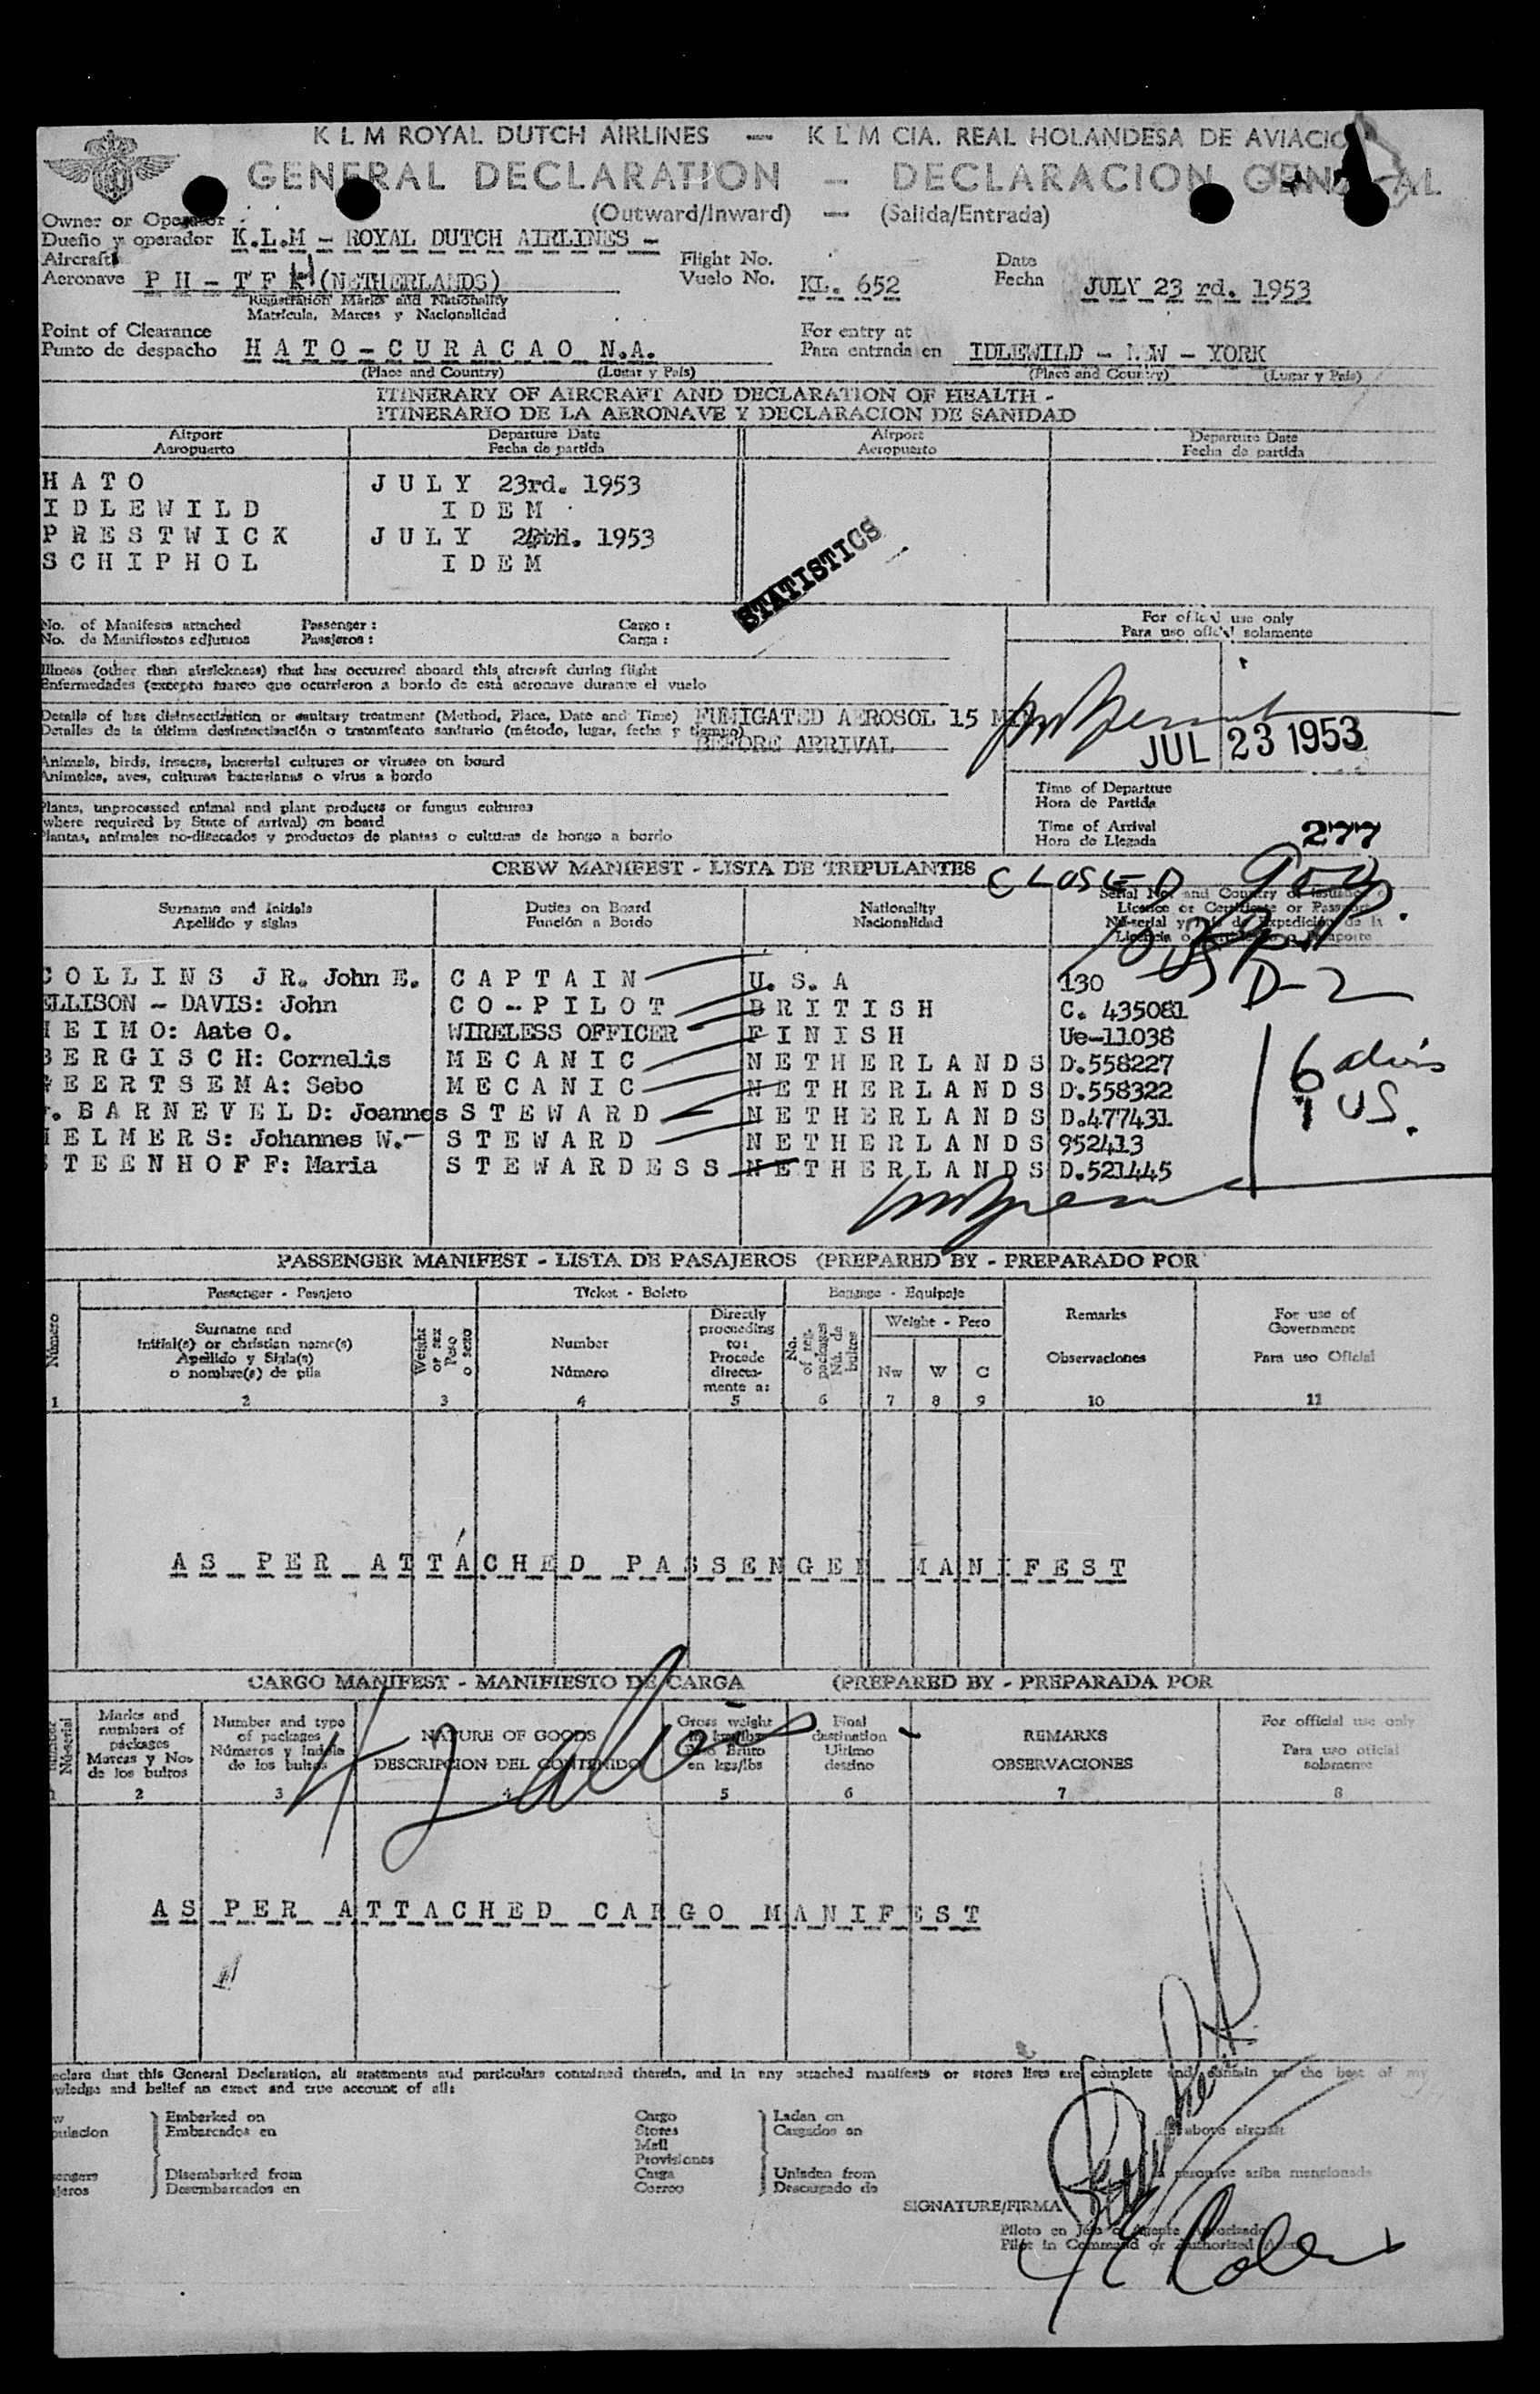 K L M ROYAL DUTCH AIRLINES — K L M CIA. REAL HOLANDESA DE AVIACIO
GENERAL DECLARATION — DECLARACION GENERAL
(Outward/Inward) — (Salida/Entrada)
Owner or Operator
Dueño y operador K.L.M - ROYAL DUTCH AIRLINES -
Aircraft
Aeronave PH-TFH (NETHERLANDS)
Registration Marks and Nationality
Matricula, Marcas y Nacionalidad
Flight No.
Vuelo No. KL. 652
Date
Fecha JULY 23 rd. 1953
Point of Clearance
Punto de despacho HATO-CURACAO N.A.
(Place and Country) (Lugar y País)
For entry at
Para entrada en IDLEWILD - NEW - YORK
(Place and Country) (Lugar y País)
ITINERARY OF AIRCRAFT AND DECLARATION OF HEALTH -
ITINERARIO DE LA AERONAVE Y DECLARACION DE SANIDAD
Airport Departure Date Airport Departure Date
Aeropuerto Fecha de partida Aeropuerto Fecha de partida
HATO JULY 23rd. 1953
IDLEWILD IDEM
PRESTWICK JULY 1953
SCHIPHOL IDEM
STATISTICS
No. of Manifests attached Passenger : Cargo :
No. de Manifiestos adjuntos Pasajeros : Carga :
For official use only
Para uso oficial solamente
Illness (other than airsickness) that has occurred aboard this aircraft during flight
Enfermedades (excepto mareo que ocurrieron a bordo de está aeronave durante el vuelo
Details of last disinsectization or sanitary treatment (Method, Place, Date and Time) FUMIGATED AEROSOL 15 MIN
Detalles de la última desinsectización o tratamiento sanitario (método, lugar, fecha y tiempo) BEFORE ARRIVAL
JUL 23 1953
Animals, birds, insects, bacterial cultures or viruses on board
Animales, aves, culturas bacterianas o virus a bordo
Plants, unprocessed animal and plant products or fungus cultures
(where required by State of arrival) on board
Plantas, animales no-disecados y productos de plantas o culturas de hongo a bordo
Time of Departure
Hora de Partida
Time of Arrival
Hora de Llegada 277
CREW MANIFEST - LISTA DE TRIPULANTES
CLOSED
Surname and Initials Duties on Board Nationality Serial No. and Country of issuance of
Apellido y siglas Función a Bordo Nacionalidad Licence or Certificate or Passport
COLLINS JR. John E. CAPTAIN U.S.A 130
US D-2
ELLISON - DAVIS: John CO-PILOT BRITISH C. 435081
HEIMO: Aate O. WIRELESS OFFICER FINISH Ue-11038
BERGISCH: Cornelis MECANIC NETHERLANDS D.558227
GEERTSEMA: Sebo MECANIC NETHERLANDS D.558322
v. BARNEVELD: Joannes STEWARD NETHERLANDS D.477431
HELMERS: Johannes W.- STEWARD NETHERLANDS 952413
STEENHOFF: Maria STEWARDESS NETHERLANDS D.521445
1 US.
PASSENGER MANIFEST - LISTA DE PASAJEROS (PREPARED BY - PREPARADO POR
Passenger - Pasajero Ticket - Boleto Baggage - Equipaje
Número
Surname and
Initial(s) or christian name(s)
Apellido y Sigla(s)
o nombre(s) de pila
Weight
or sex
Peso
o sexo
Number
Número
Directly
proceeding
to:
Procede
directa-
mente a:
No.
of reg.
packages
Nú. de
bultos
Weight - Peso
Nw W C
Remarks
Observaciones
For use of
Government
Para uso Oficial
1 2 3 4 5 6 7 8 9 10 11
AS PER ATTACHED PASSENGER MANIFEST
CARGO MANIFEST - MANIFIESTO DE CARGA (PREPARED BY - PREPARADA POR
Number
Nú-serial
Marks and
numbers of
packages
Marcas y Nos
de los bultos
Number and type
of packages
Números y Indole
de los bultos
NATURE OF GOODS
DESCRIPCION DEL CONTENIDO
Gross weight
in kgs/lbs
Peso Bruto
en kgs/lbs
Final
destination
Ultimo
destino
REMARKS
OBSERVACIONES
For official use only
Para uso oficial
solamente
1 2 3 4 5 6 7 8
AS PER ATTACHED CARGO MANIFEST
eclare that this General Declaration, all statements and particulars contained therein, and in any attached manifests or stores lists are complete and contain to the best of my
wledge and belief an exact and true account of all:
w
pulacion
Embarked on
Embarcados en
engers
jeros
Disembarked from
Desembarcados en
Cargo
Stores
Mail
Provisiones
Carga
Correo
Laden on
Cargados en
Unladen from
Descargado de
above aircraft
aeronave ariba mencionada
SIGNATURE/FIRMA
Piloto en Jefe o Agente Autorizado
Pilot in Command or Authorized Agent